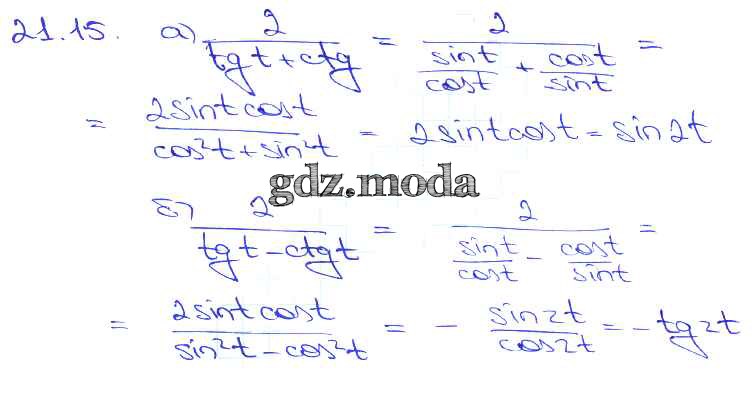 21.15. а) 2/(tg t + ctg) = 2/(sin t/cos t + cos t/sin t) =
= 2 sin t cos t/(cos²t + sin²t) = 2 sin t cos t = sin 2t
gdz.moda
б) 2/(tg t - ctg t) = 2/(sin t/cos t - cos t/sin t) =
= 2 sin t cos t/(sin²t - cos²t) = - sin 2t/cos 2t = - tg 2t